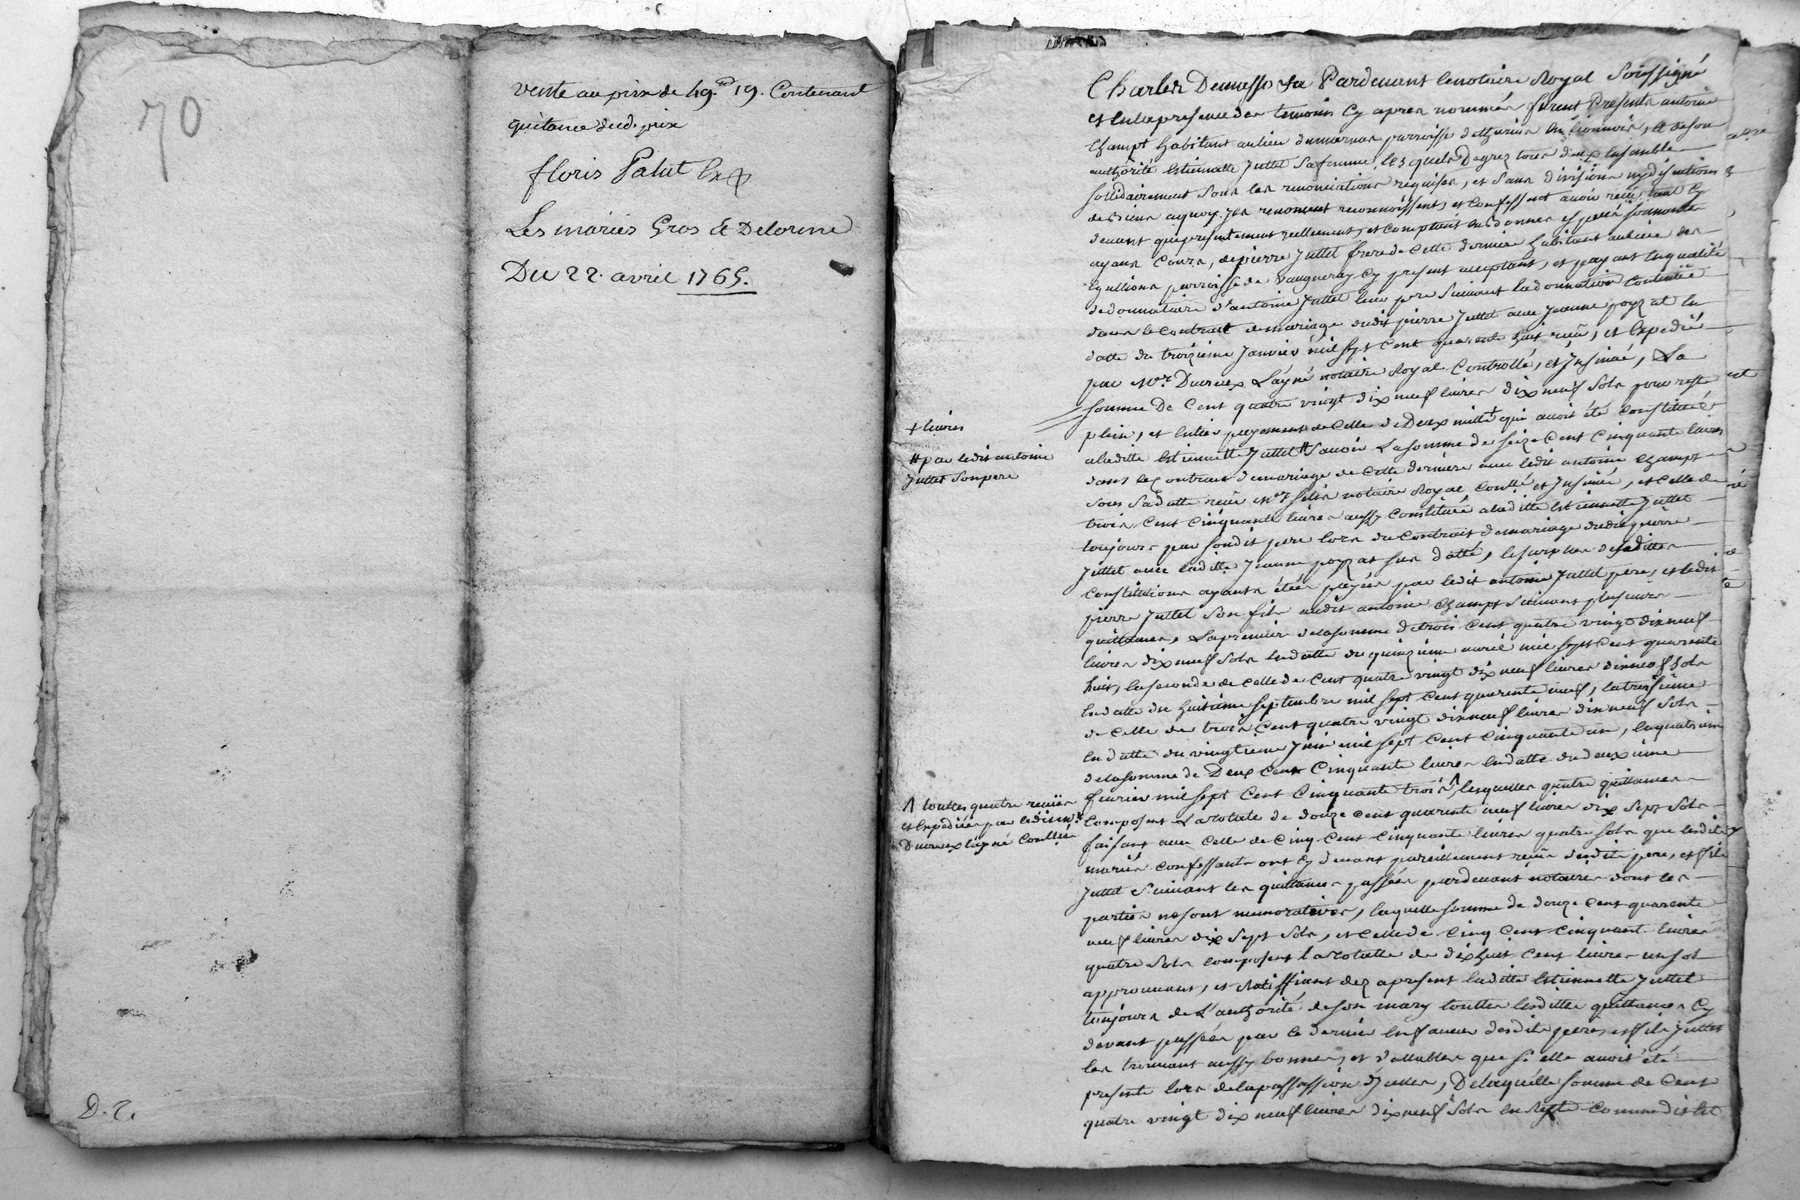 70
vente au prix de 49.# 19. Contenant
quitance dud. prix
floris Palut
Les mariés Gros & Delorme
Du 22. avril 1765.
D. 2.
+ livres
# par ledit antoine
Juttet son pere
Λ touttes quatre recües
et Expediées par ledit me
Ducreux L'ayné Conllée
Par devant le notaire Royal Soussigné
et En la presence des temoins Cy apres nommés furent Presents antoine
Champt habitant au lieu du paroisse de Thurins En Lionnois, & de son
authorité Estiennette Juttet sa femme, lesquels de gré tous deux Ensemble
sollidairement sous les renonciations requises, et sans division ny discution
de biens reconnoissent, et Confessent avoir reçû tant Cy
devant que presentement reellement, et comptant
ayant Cours, de pierre Juttet frere de Cette derniere habitant au lieu des
paroisse de Vaugneray Cy present acceptant, et payant En qualité
de donnataire d'antoine Juttet leur pere suivant la donnation Contenüe
dans le Contract de mariage dudit pierre Juttet avec Jeanne poyzat En
datte du troizieme Janvier mil sept Cent quarente huit reçû, et Expedié
par Me Ducreux L'ayné notaire Royal Controllé, et Insinué, La
somme De Cent quatre vingt dix neuf livres dix neuf sols pour reste
plein, et Entier payement de Celle de Deux mille + qui avoit été Constituée
a laditte Estiennette Juttet # savoir La somme de seize Cent Cinquante livres
dans le Contract de mariage de Cette derniere avec ledit antoine Champt
sous sa datte reçû Me notaire Royal Conllé et Insinué, et Celle de
trois Cent Cinquante livres aussy Constituée a laditte Estiennette Juttet
toujours par sondit pere lors du Contract de mariage dudit pierre
Juttet avec laditte Jeanne poyzat sus datté, le surplus desdittes
Constitutions ayant étés payées par ledit antoine Juttet pere, et ledit
pierre Juttet son fils audit antoine Champt suivant plusieurs
quittances, La premiere de la somme de trois Cent quatre vingt dix neuf
livres dix neuf sols En datte du quinzieme avril mil sept Cent quarente
huit, la seconde de celle de Cent quatre vingt dix neuf livres dix neuf sols
En datte du huitieme septembre mil sept Cent quarente neuf, la troisieme
de Celle de trois Cent quatre vingt dix neuf livres dix neuf sols
En datte du vingtieme Juin mil sept Cent Cinquante un, la quatrieme
de la somme de Deux Cent Cinquante livres En datte du deuxieme
fevrier mil sept Cent Cinquante trois Λ lesquelles quatre quittances
Composent La totale de douze Cent quarente neuf livres dix sept sols
faisant avec Celle de Cinq Cent Cinquante livres quatre sols que lesdits
mariés Confessants ont Cy devant pareillement reçû desdits pere, et fils
Juttet suivant les quittances passées pardevant notaires dont les
parties ne sont memoratives, laquelle somme de douze Cent quarente
neuf livres dix sept sols, et Celle de Cinq Cent Cinquante livres
quatre sols Composent La totalle de dix huit Cent livres un sol
approuvant, et Ratiffiant dez a present laditte Estiennette Juttet
toujours de L'authorité de son mary touttes lesdittes quittances Cy
devant passées par Ce dernier En faveur desdits peres, et fils Juttet
les trouvant aussy bonnes, et vallables que si elle avoit été
presente lors de la passassion d'Jcelles, De laquelle somme de Cent
quatre vingt dix neuf livres dix neuf sols En Reste comme dit est